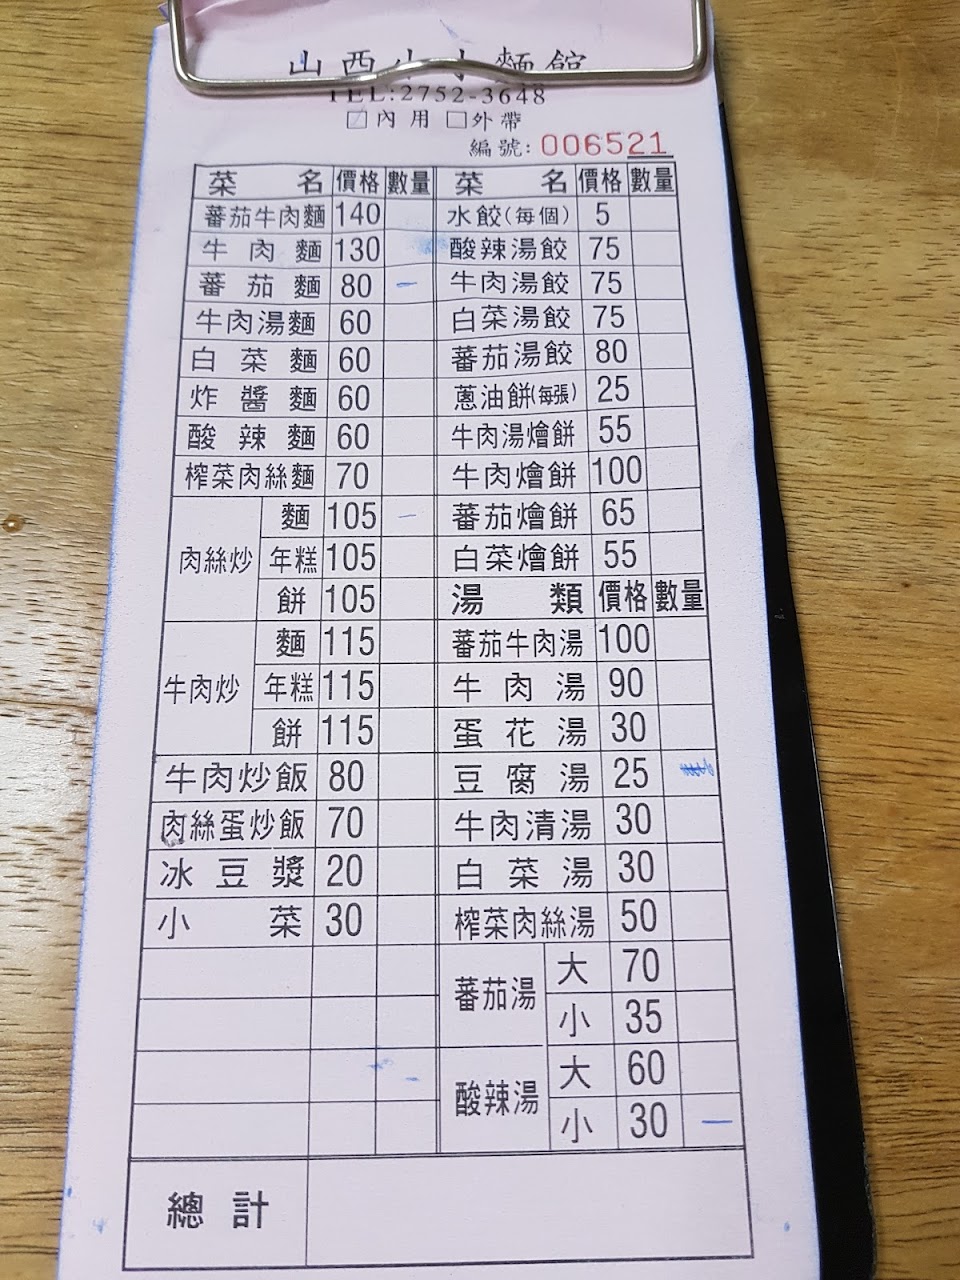 山西小小麵館
TEL:2752-3648
☑內用 □外帶
編號: 006521
菜名 價格 數量 菜名 價格 數量
蕃茄牛肉麵 140 水餃(每個) 5
牛肉麵 130 酸辣湯餃 75
蕃茄麵 80 一 牛肉湯餃 75
牛肉湯麵 60 白菜湯餃 75
白菜麵 60 蕃茄湯餃 80
炸醬麵 60 蔥油餅(每張) 25
酸辣麵 60 牛肉湯燴餅 55
榨菜肉絲麵 70 牛肉燴餅 100
肉絲炒 麵 105 一 蕃茄燴餅 65
年糕 105 白菜燴餅 55
餅 105 湯類 價格 數量
牛肉炒 麵 115 蕃茄牛肉湯 100
年糕 115 牛肉湯 90
餅 115 蛋花湯 30
牛肉炒飯 80 豆腐湯 25
肉絲蛋炒飯 70 牛肉清湯 30
冰豆漿 20 白菜湯 30
小菜 30 榨菜肉絲湯 50
蕃茄湯 大 70
小 35
酸辣湯 大 60
小 30 一
總計